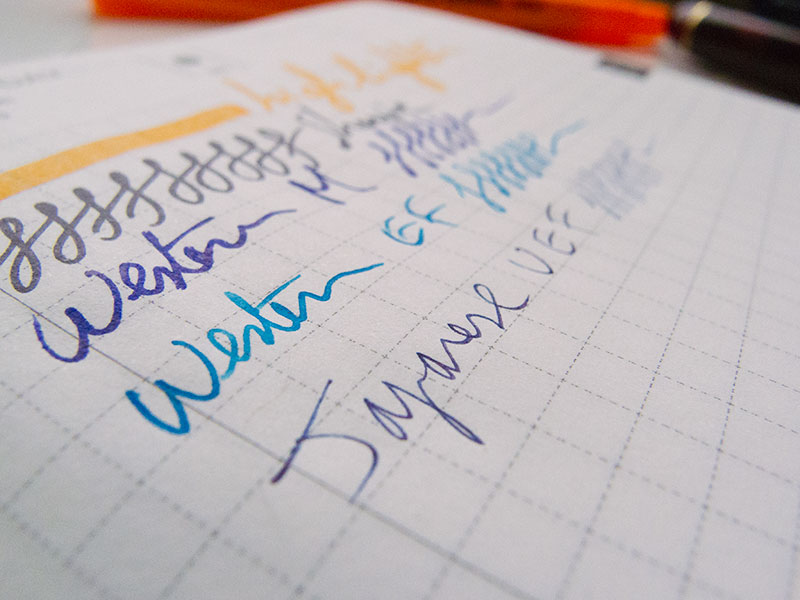 highlight
Western M
Western EF
Japanese UEF